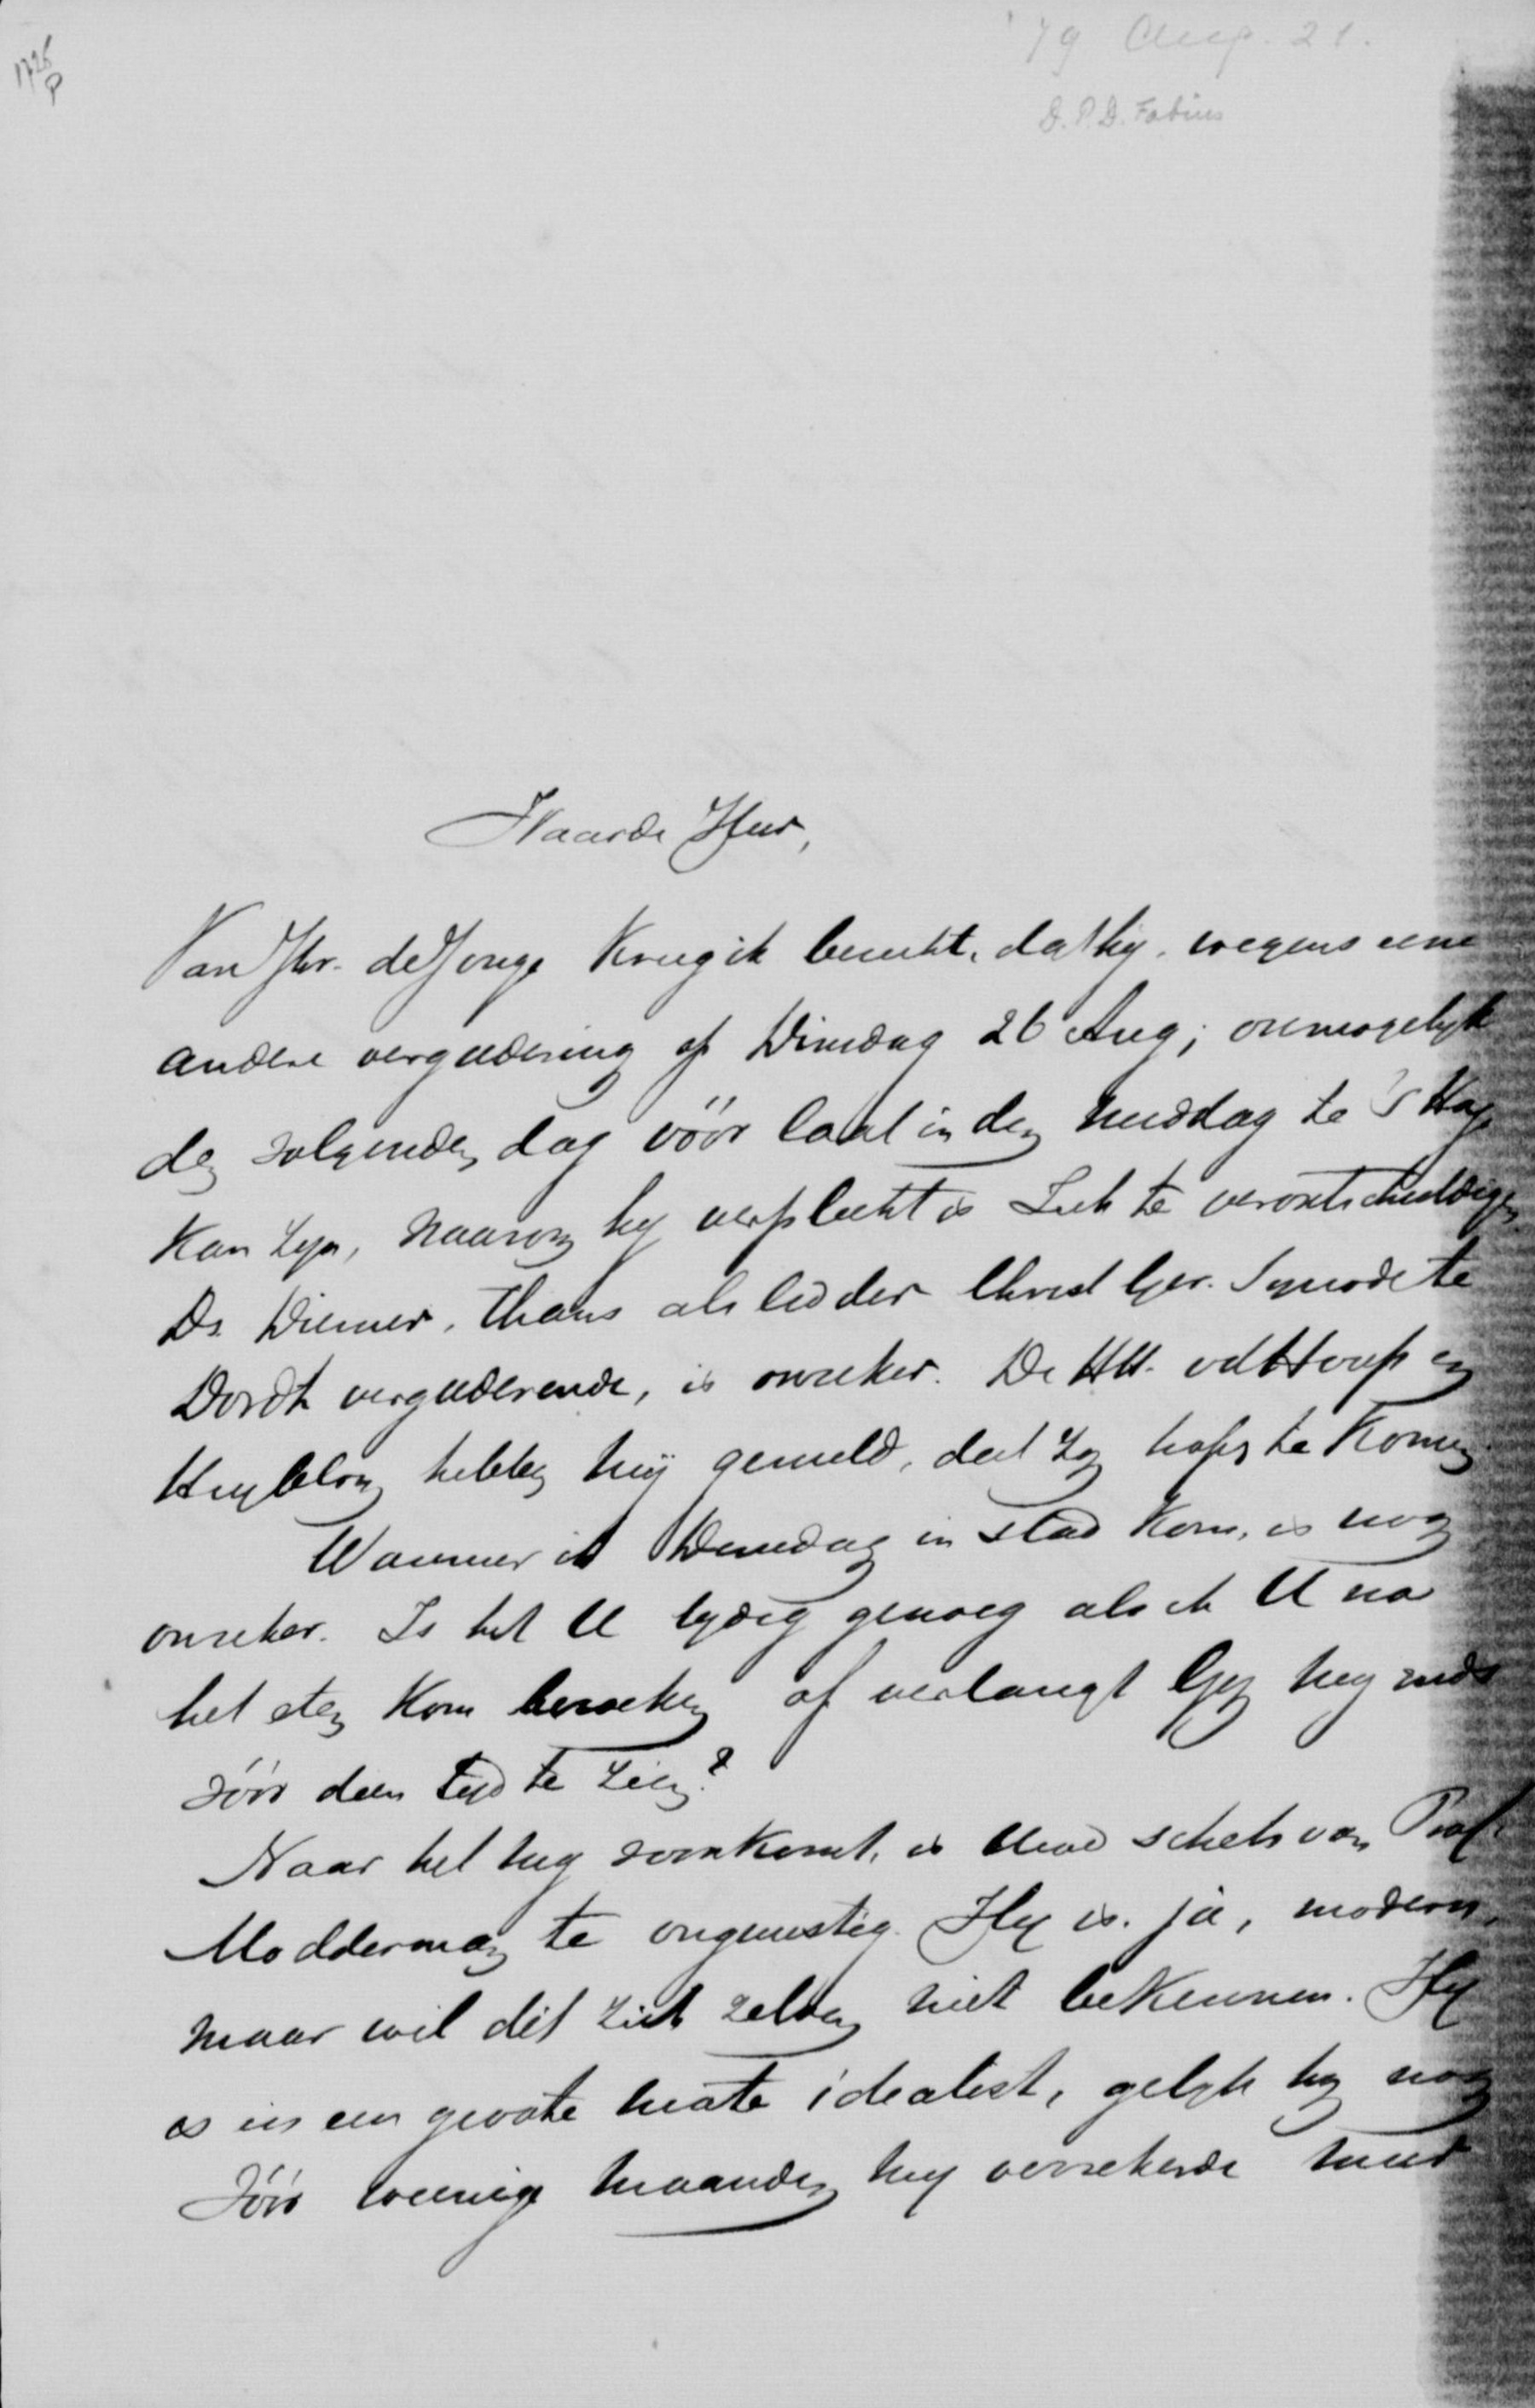 1726
P
'79 Aug. 21.
D.P.D. Fabius
Waarde Heer,
Van Jhr. de Jonge kreeg ik bericht, dat hij, wegens eene
andere vergadering op Dinsdag 26 Aug, onmogelijk
den volgenden dag vóór laat in den middag te 's Hage
kan zijn, waarom hij verplicht is zich te verontschuldigen.
Ds. Diemer, thans als lid der Christ Ger. Synode te
Dordt vergaderende, is onzeker. De HH. vdHoop en
Huyblom hebben mij gemeld, dat zij hopen te komen.
Wanneer ik Dinsdag in stad kom, is nog
onzeker. Is het U tijdig genoeg als ik U na
het eten kom bezoeken of verlangt Gij mij reeds
vóór dien tijd te zien?
Naar het mij voorkomt, is Uwe schets van Prof.
Modderman te ongunstig. Hij is, ja, modern,
maar wil dit zich zelven niet bekennen. Hij
is in een groote mate idealist, gelijk hij nog
vóór weenige maanden mij verzekerde meer